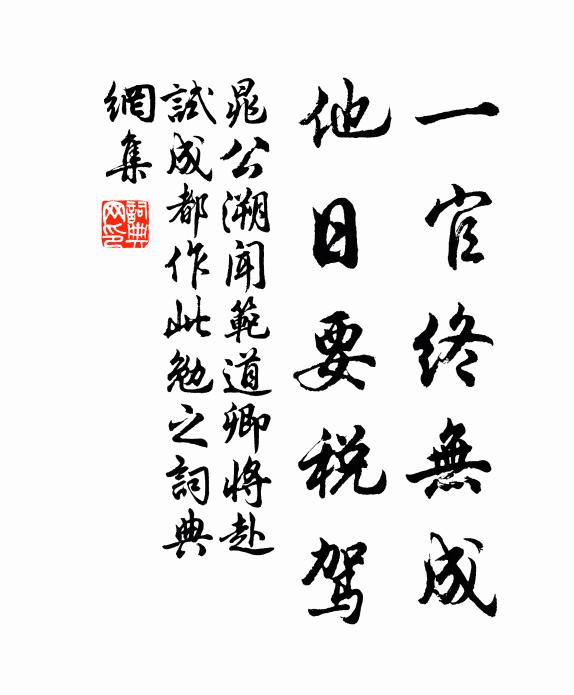 一官終無成
他日要税駕
晁公溯聞範道卿將赴
試成都作此勉之詞典
網集
詞典
网印